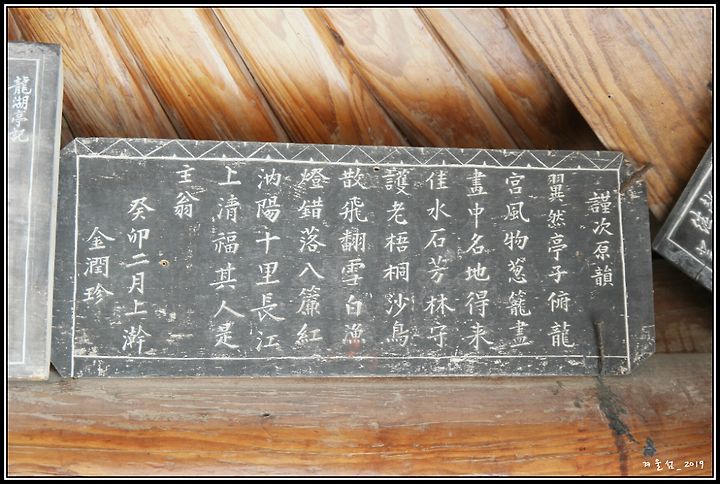 謹次原韻
翼然亭子俯龍
宮風物葱籠盡
畫中名地得来
佳水石芳林守
護老梧桐沙鳥
散飛翻雪白漁
燈錯落八簾紅
汭陽十里長江
上清福其人是
主翁
癸卯二月上澣
金潤珍
龍湖亭記
겨울섬_2019